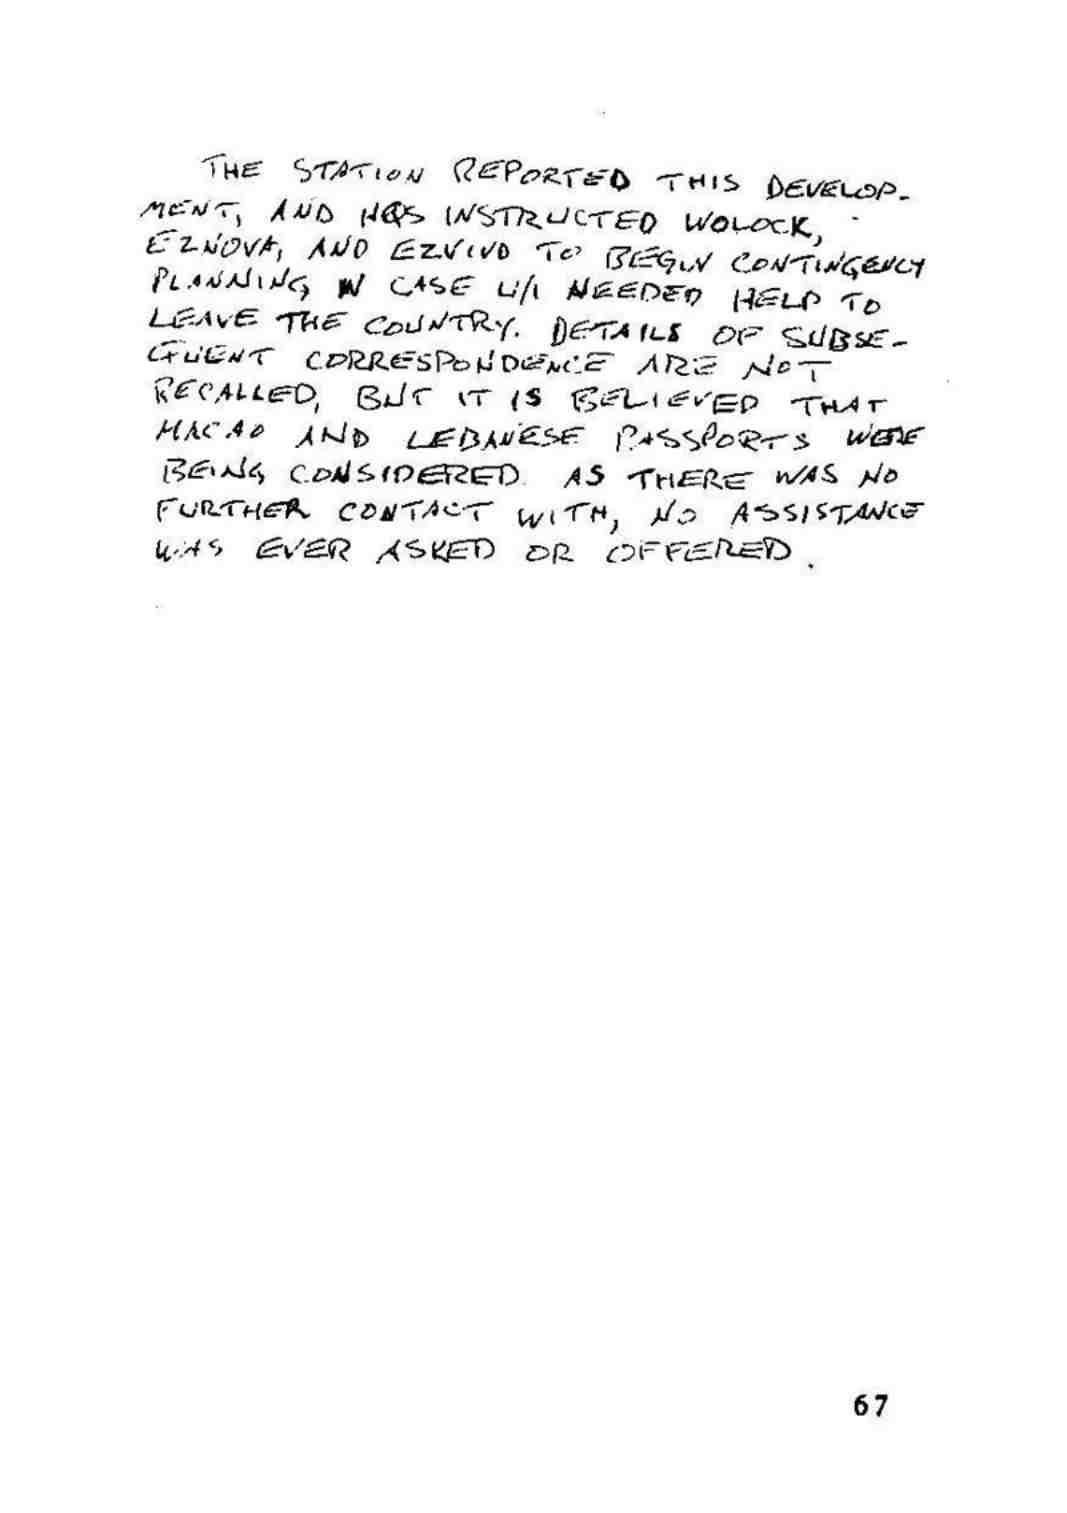 THE STATION REPORTED THIS DEVELOP-
MENT, AND HQS INSTRUCTED WOLOCK,
EZNOVA, AND EZVIVD TO BEGIN CONTINGENCY
PLANNING IN CASE U/I NEEDED HELP TO
LEAVE THE COUNTRY. DETAILS OF SUBSE-
QUENT CORRESPONDENCE ARE NOT
RECALLED, BUT IT IS BELIEVED THAT
MACAO AND LEBANESE PASSPORTS WERE
BEING CONSIDERED. AS THERE WAS NO
FURTHER CONTACT WITH, NO ASSISTANCE
WAS EVER ASKED OR OFFERED.
67